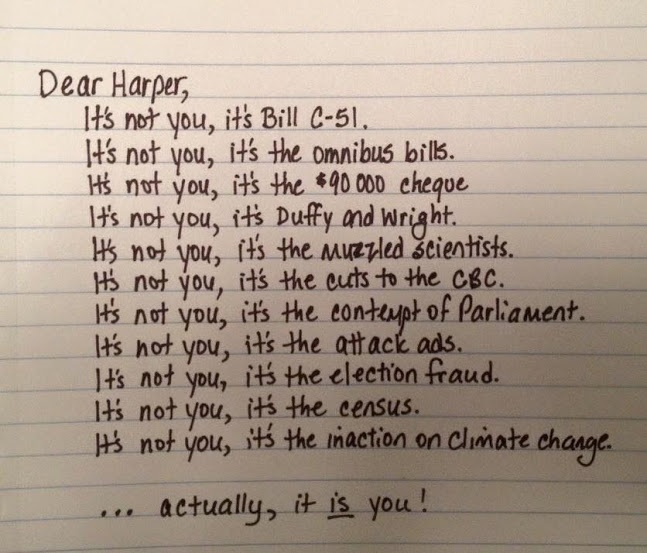 Dear Harper,
It's not you, it's Bill C-51.
It's not you, it's the omnibus bills.
It's not you, it's the $90 000 cheque
It's not you, it's Duffy and Wright.
It's not you, it's the muzzled scientists.
It's not you, it's the cuts to the CBC.
It's not you, it's the contempt of Parliament.
It's not you, it's the attack ads.
It's not you, it's the election fraud.
It's not you, it's the census.
It's not you, it's the inaction on climate change.
... actually, it is you!